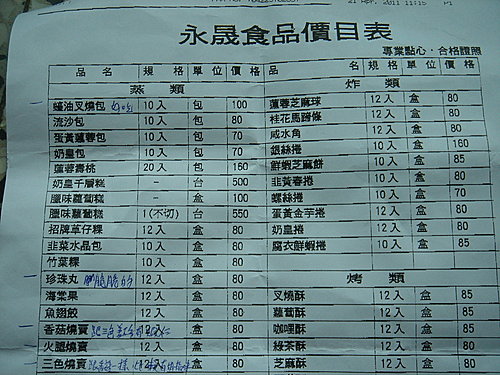 21 Apr. 2011 11:15 P1
永晟食品價目表
專業點心．合格證照
品 名 規 格 單 位 價 格 品 名 規 格 單 位 價 格
蒸 類 炸 類
蠔油叉燒包 10入 包 100 蓮蓉芝麻球 12入 盒 80
流沙包 10入 包 80 桂花馬蹄條 12入 盒 80
蛋黃蓮蓉包 10入 包 70 咸水角 12入 盒 80
奶皇包 10入 包 70 銀絲捲 10入 盒 160
蓮蓉壽桃 20入 包 160 鮮蝦芝麻餅 10入 盒 85
奶皇千層糕 - 台 500 韭黃春捲 10入 盒 80
臘味蘿蔔糕 - 盒 100 螺絲捲 10入 盒 70
臘味蘿蔔糕 1(不切) 台 550 蛋黃金芋捲 12入 盒 80
招牌草仔粿 12入 盒 80 奶皇捲 12入 盒 80
韭菜水晶包 10入 盒 80 腐衣鮮蝦捲 10入 盒 85
竹葉粿 10入 盒 80
珍珠丸 12入 盒 80 烤 類
海棠果 12入 盒 80 叉燒酥 12入 盒 85
魚翅餃 12入 盒 80 蘿蔔酥 12入 盒 85
香菇燒賣 12入 盒 80 咖哩酥 12入 盒 85
火腿燒賣 12入 盒 80 綠茶酥 12入 盒 85
三色燒賣 盒 80 芝麻酥 12入 盒 85